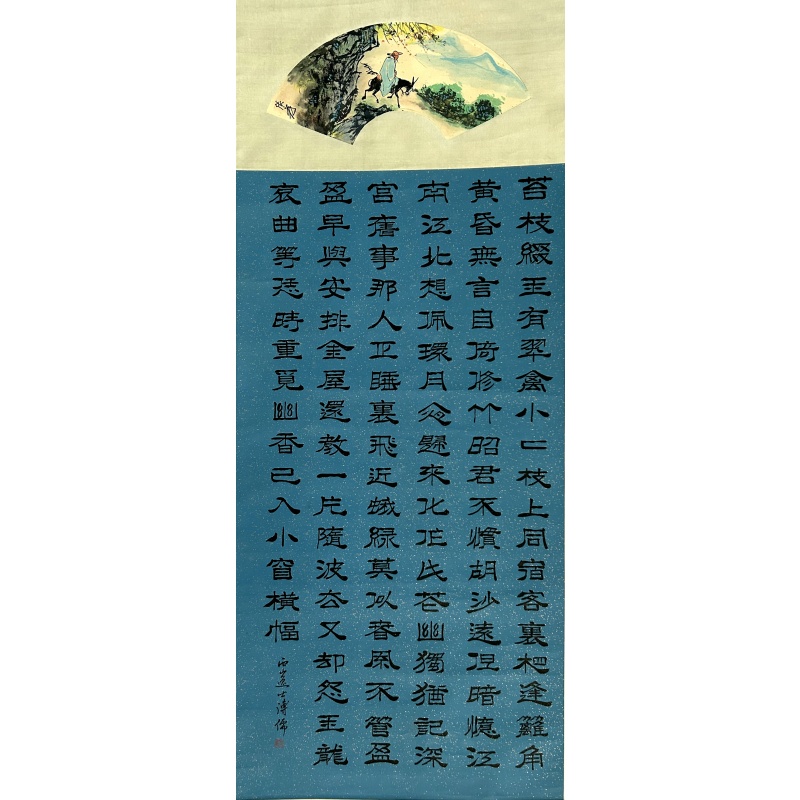 苔枝綴玉有翠禽小二枝上同宿客裏相逢籬角
黃昏無言自倚修竹昭君不慣胡沙遠但暗憶江
南江北想佩環月夜歸來化作此花幽獨猶記深
宮舊事那人正睡裏飛近蛾綠莫似春風不管盈
盈早與安排金屋還教一片隨波去又却怨玉龍
哀曲等恁時重覓幽香已入小窗橫幅
西山逸士溥儒